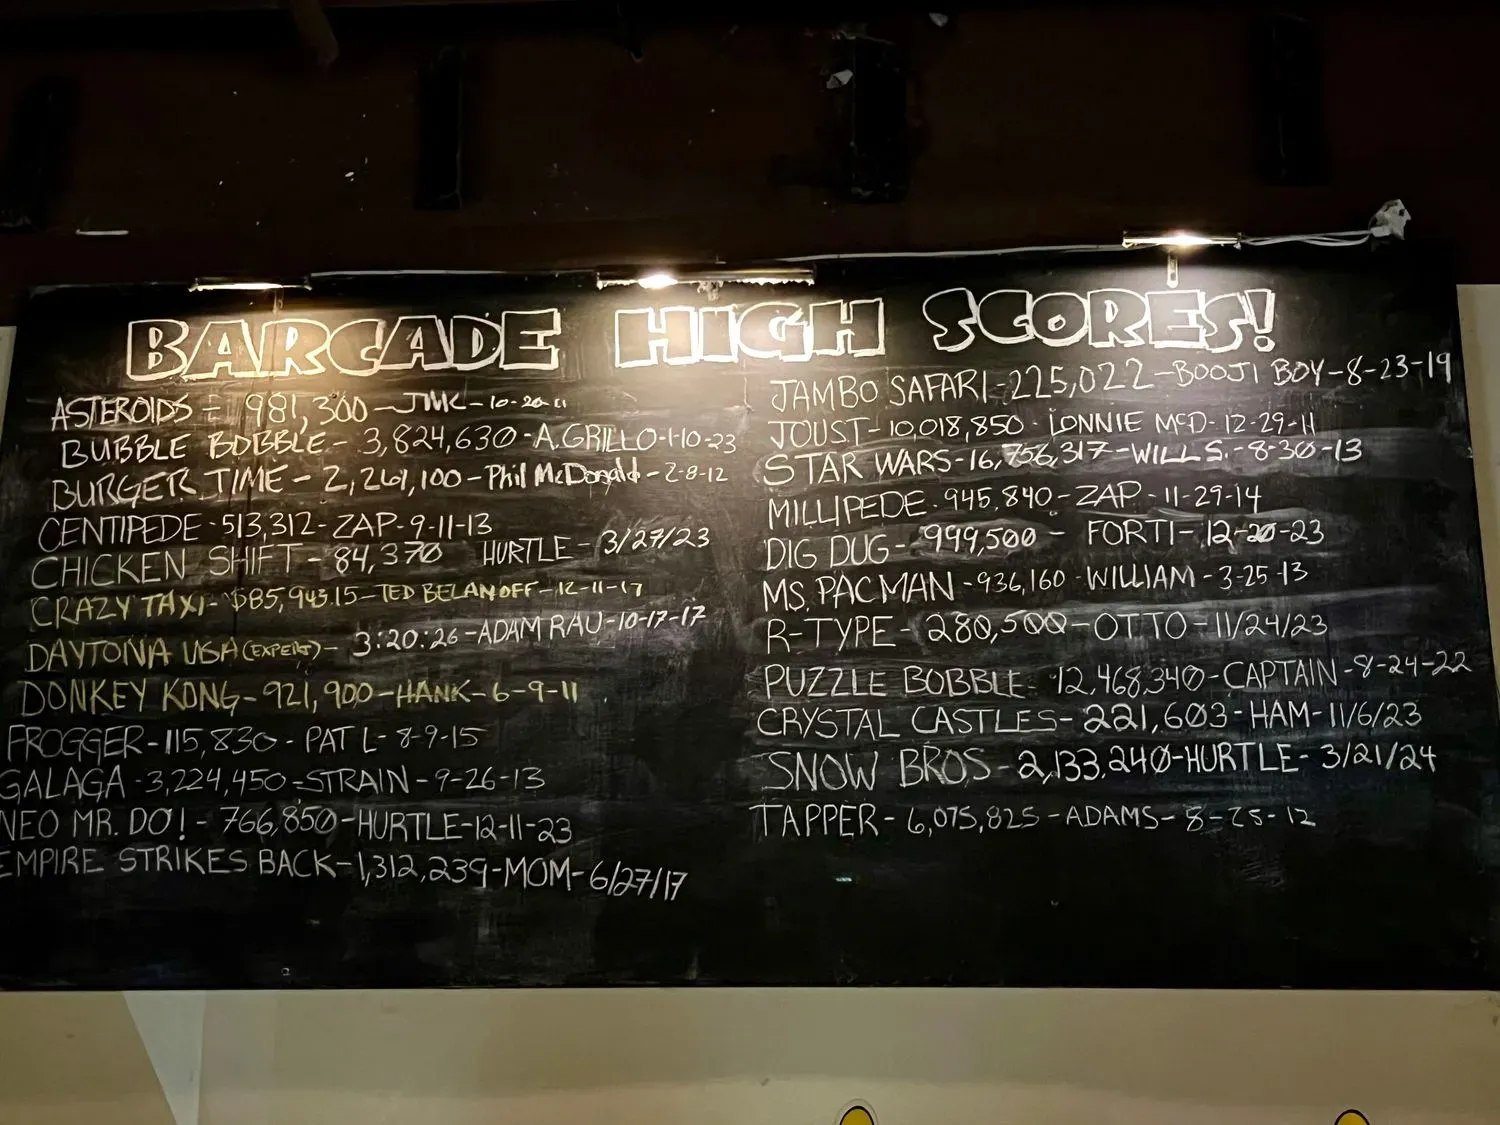 BARCADE HIGH SCORES!
ASTEROIDS - 981,300 - JMC - 10-20-11
BUBBLE BOBBLE - 3,824,630 - A.GRILLO - 1-10-23
BURGER TIME - 2,261,100 - Phil McDonald - 2-8-12
CENTIPEDE - 513,312 - ZAP - 9-11-13
CHICKEN SHIFT - 84,370 HURTLE - 3/27/23
CRAZY TAXI - $85,945.15 - TED BELANOFF - 12-11-17
DAYTONA USA (EXPERT) - 3:20:26 - ADAM RAU - 10-17-17
DONKEY KONG - 921,900 - HANK - 6-9-11
FROGGER - 115,830 - PAT L - 8-9-15
GALAGA - 3,224,450 - STRAIN - 9-26-13
NEO MR. DO! - 766,850 - HURTLE - 12-11-23
EMPIRE STRIKES BACK - 1,312,239 - MOM - 6/27/17
JAMBO SAFARI - 225,022 - BOOJI BOY - 8-23-19
JOUST - 10,018,850 - LONNIE McD - 12-29-11
STAR WARS - 16,756,317 - WILL S. - 8-30-13
MILLIPEDE - 945,840 - ZAP - 11-29-14
DIG DUG - 999,500 - FORTI - 12-20-23
MS. PACMAN - 936,160 - WILLIAM - 3-25-13
R-TYPE - 280,500 - OTTO - 11/24/23
PUZZLE BOBBLE - 12,468,340 - CAPTAIN - 8-24-22
CRYSTAL CASTLES - 221,603 - HAM - 11/6/23
SNOW BROS - 2,133,240 - HURTLE - 3/21/24
TAPPER - 6,075,825 - ADAMS - 8-25-12